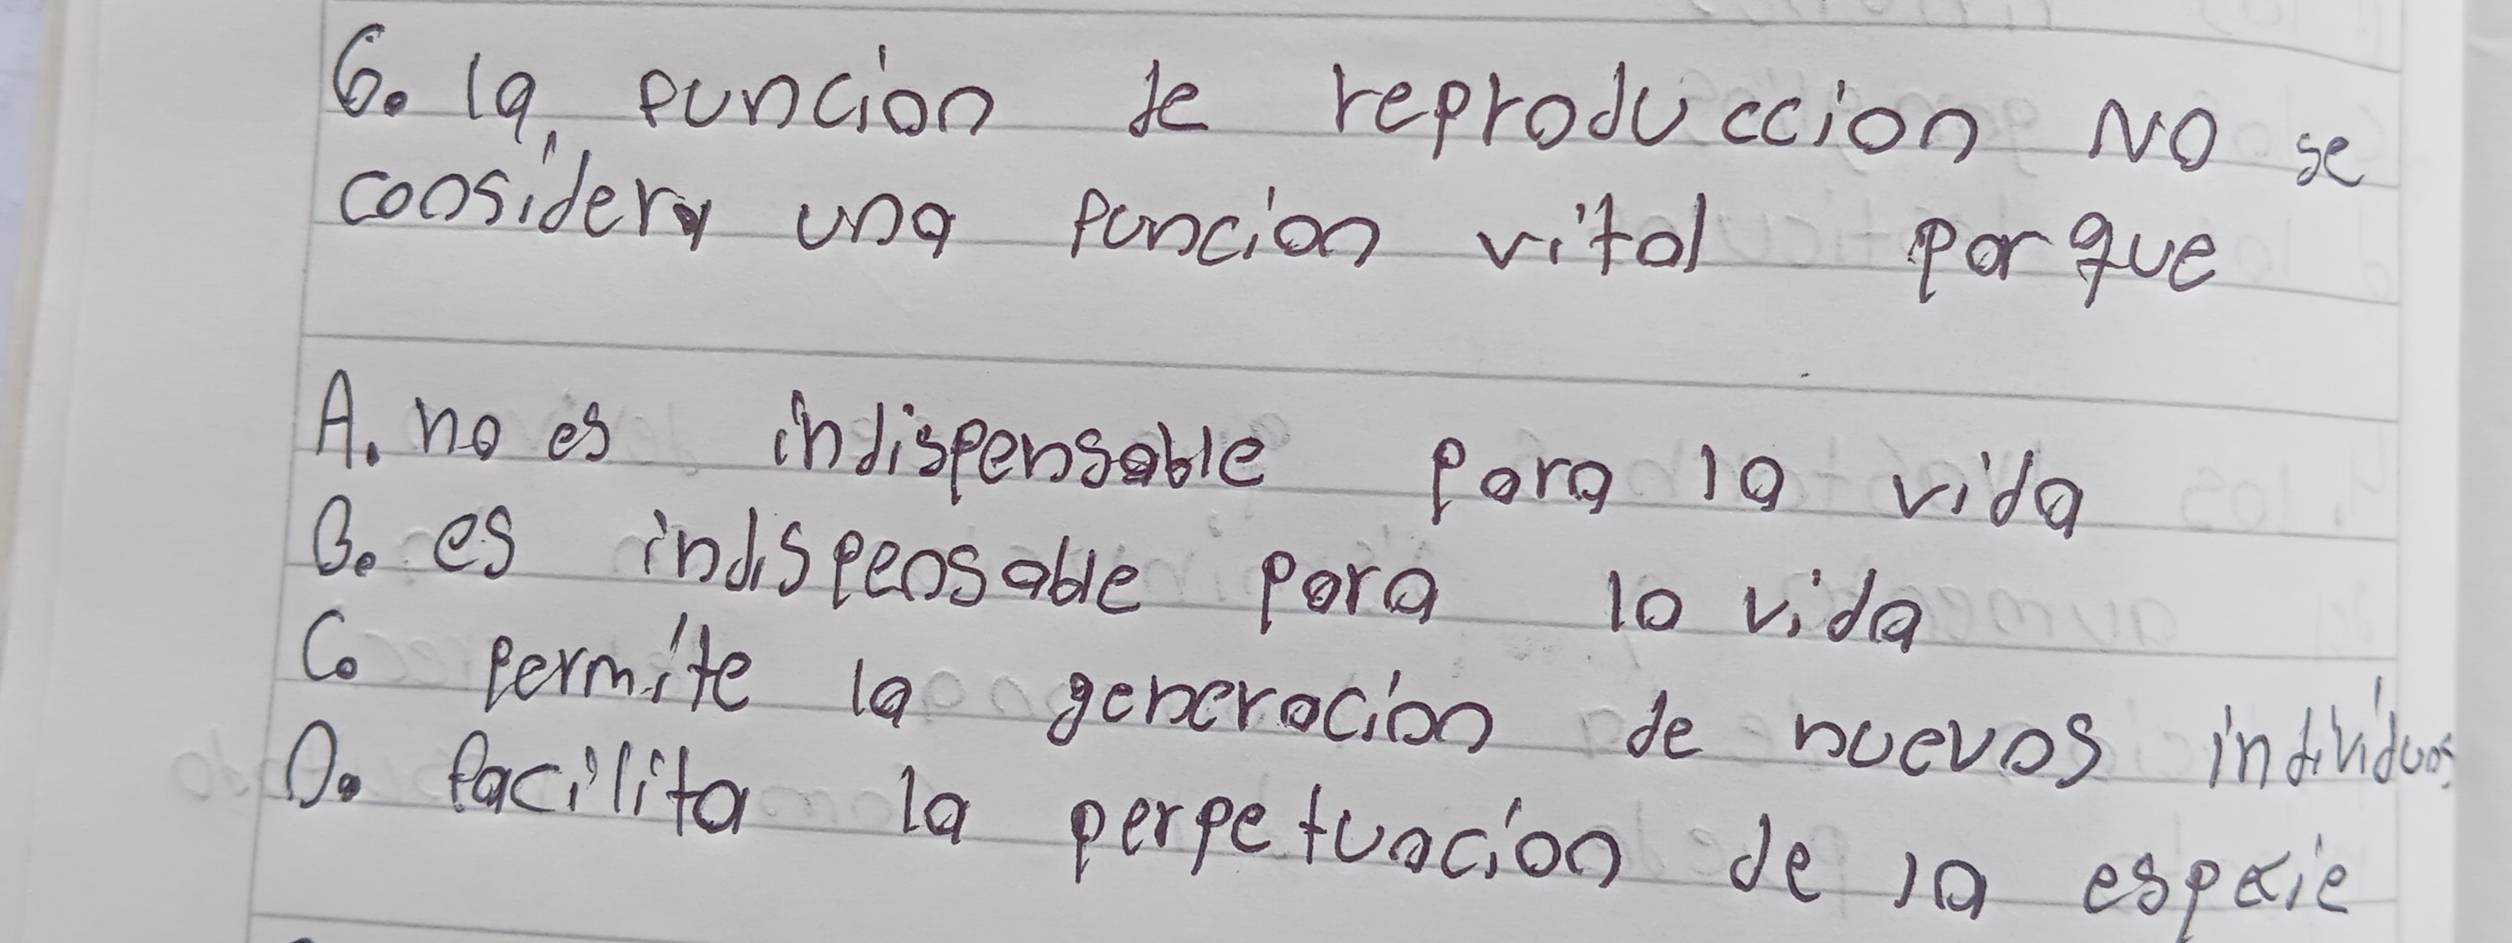 6. la funcion de reproduccion NO se
considera una funcion vital porque
A. no es indispensable para la vida
B. es indispensable para la vida
C. permite la generacion de nuevos individuos
D. facilita la perpetuacion de la especie